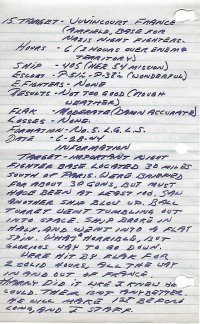 15. TARGET - JUVINCOURT FRANCE
(AIRFIELD, BASE FOR
NAZIS NIGHT FIGHTERS.
HOURS - 6 (3 HOURS OVER ENEMY
TERRITORY)
SHIP - 485 (HER 54 MISSION)
ESCORT - P-51's - P-38's (WONDERFUL)
E. FIGHTERS - NONE
RESULTS - NOT TOO GOOD (ROUGH
WEATHER)
FLAK - MODERATE (DAMN ACCURATE)
LOSSES - NONE.
FORMATION - No. 5. L.G. L.S.
DATE - 6-28-44
INFORMATION
TARGET - IMPORTANT NIGHT
FIGHTER BASE LOCATED 30 MILES
SOUTH OF PARIS. WERE BRIEFED
FOR ABOUT 30 GUNS, BUT MUST
HAVE BEEN AT LEAST 100. SAW
ANOTHER SHIP BLOW UP. BALL
TURRET WENT TUMBLING OUT
INTO SPACE. SHIP BROKE IN
HALF, AND WENT INTO A FLAT
SPIN. WHAT HORRIBLE, BUT
GLORIOUS WAY TO GO DOWN.
WERE HIT BY FLAK FOR
2 SOLID HOURS, ALL THE WAY
IN AND OUT OF FRANCE.
HARLY DID IT LIKE I KNEW HE
COULD. THERE AINT ANY BETTER.
HE WILL MAKE 1ST BEFORE
LONG, AND I STAFF.